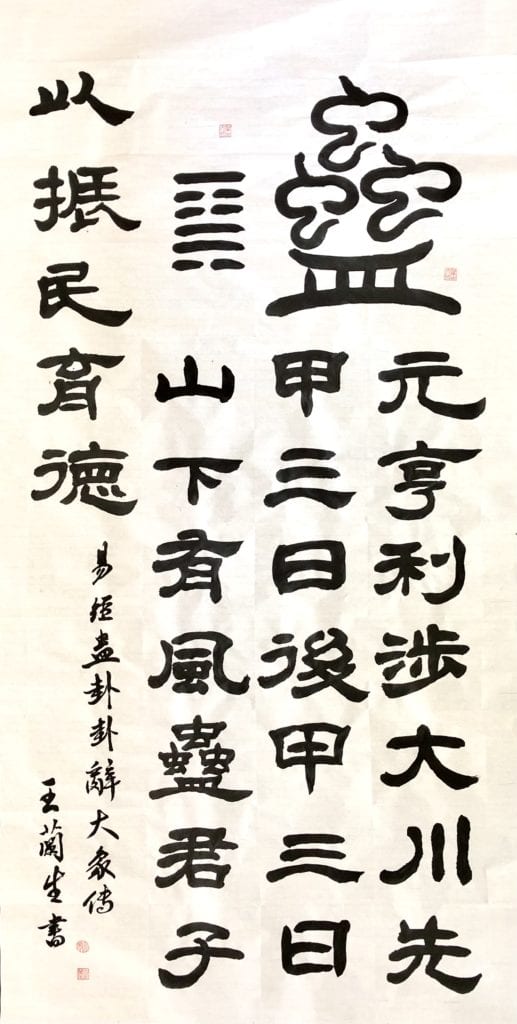 蠱
元亨利涉大川先
甲三日後甲三日
山下有風蠱君子
以振民育德
易經蛊卦卦辭大象传
王蘭生書